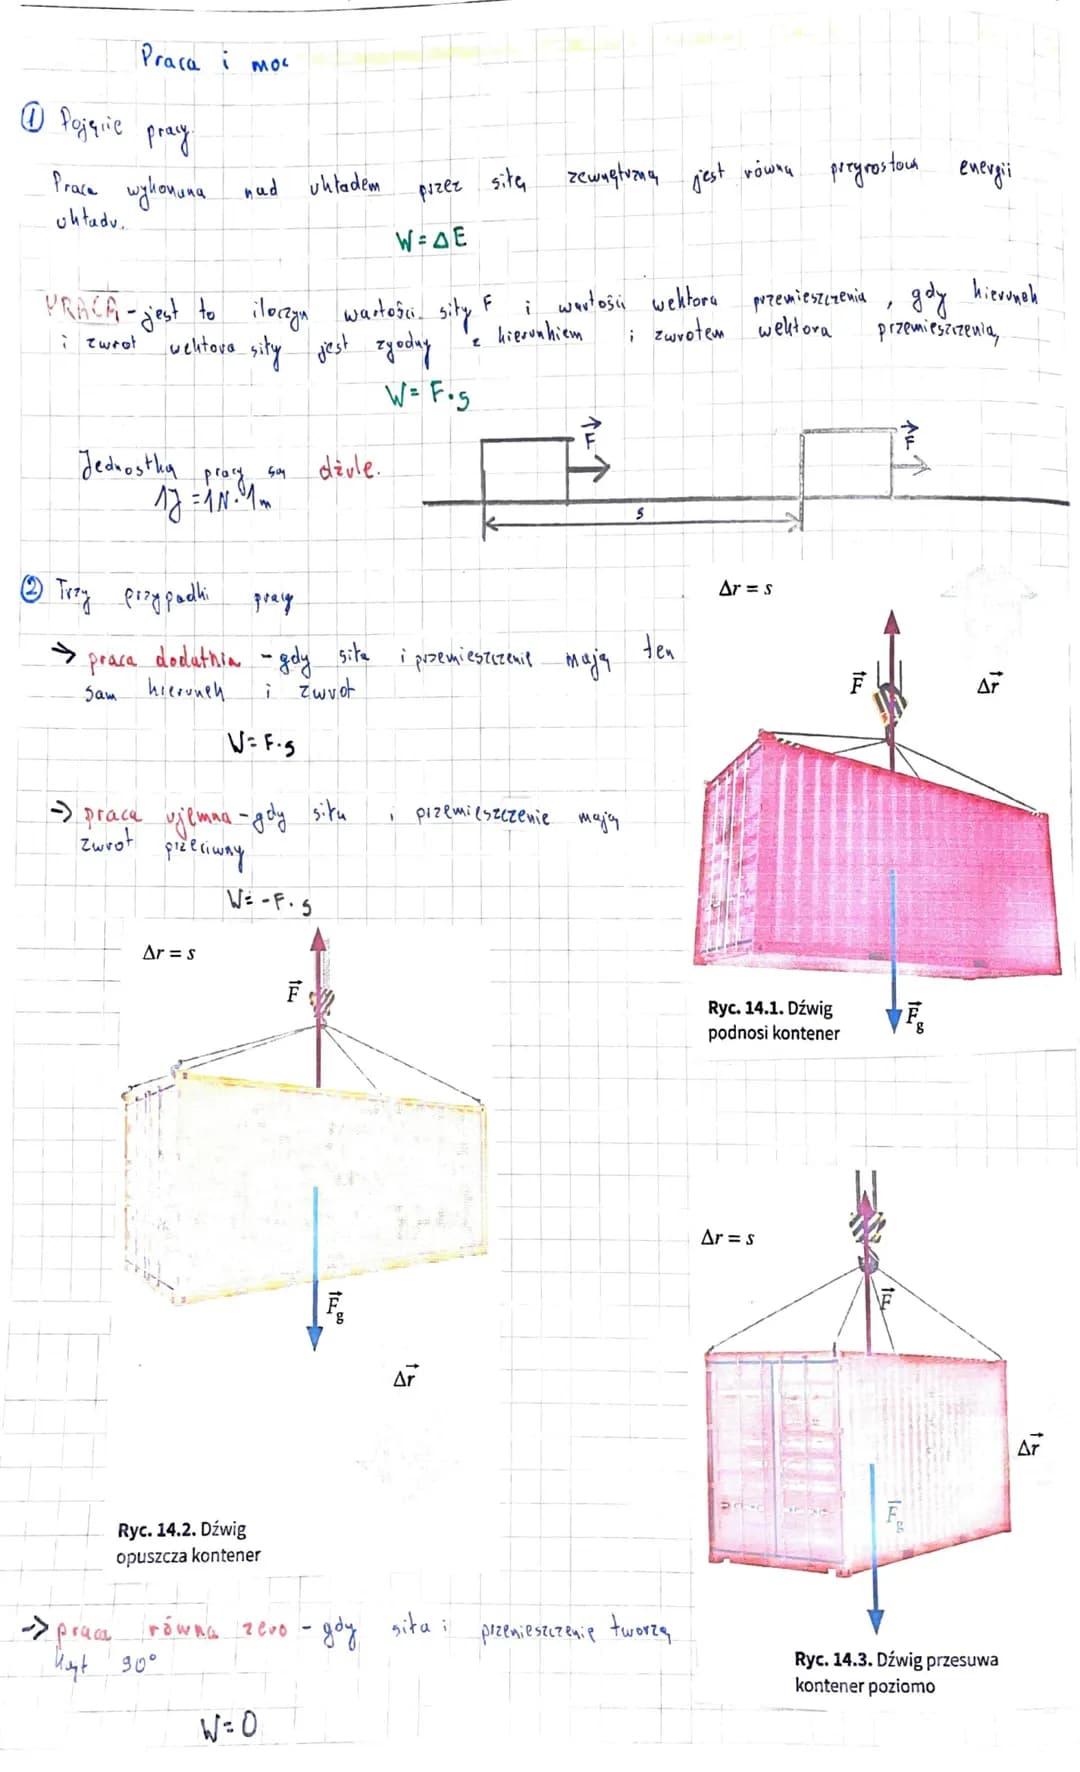 Praca i moc
① Pojęcie pracy
Praca wykonana nad układem przez siłę zewnętrzną jest równa przyrostowi energii
układu.
W = ΔE
PRACA - jest to iloczyn wartości siły F i wartości wektora przemieszczenia, gdy kierunek
i zwrot wektora siły jest zgodny z kierunkiem i zwrotem wektora przemieszczenia,
W = F · s
Jednostką pracy są dżule.
1J = 1N · 1m
F
F
s
② Trzy przypadki pracy
→ praca dodatnia - gdy siła i przemieszczenie mają ten
sam kierunek i zwrot
W = F · s
Δr = s
F
Δr
Fg
Ryc. 14.1. Dźwig
podnosi kontener
→ praca ujemna - gdy siła i przemieszczenie mają
zwrot przeciwny
W = -F · s
Δr = s
F
Fg
Δr
Ryc. 14.2. Dźwig
opuszcza kontener
Δr = s
F
Δr
Fg
Ryc. 14.3. Dźwig przesuwa
kontener poziomo
→ praca równa zero - gdy siła i przemieszczenie tworzą
kąt 90°
W = 0